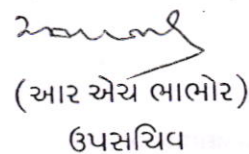 (આર એચ ભાભોર)
ઉપસચિવ